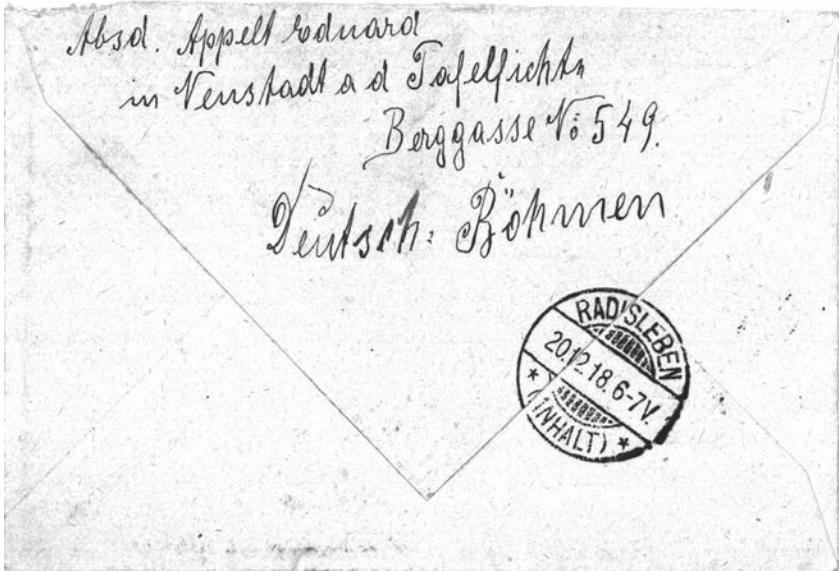 Absd. Appelt Eduard
in Neustadt a d Tafelfichte
Berggasse No 549.
Deutsch: Böhmen
RADISLEBEN
20.12.18. 6-7V.
* (ANHALT) *